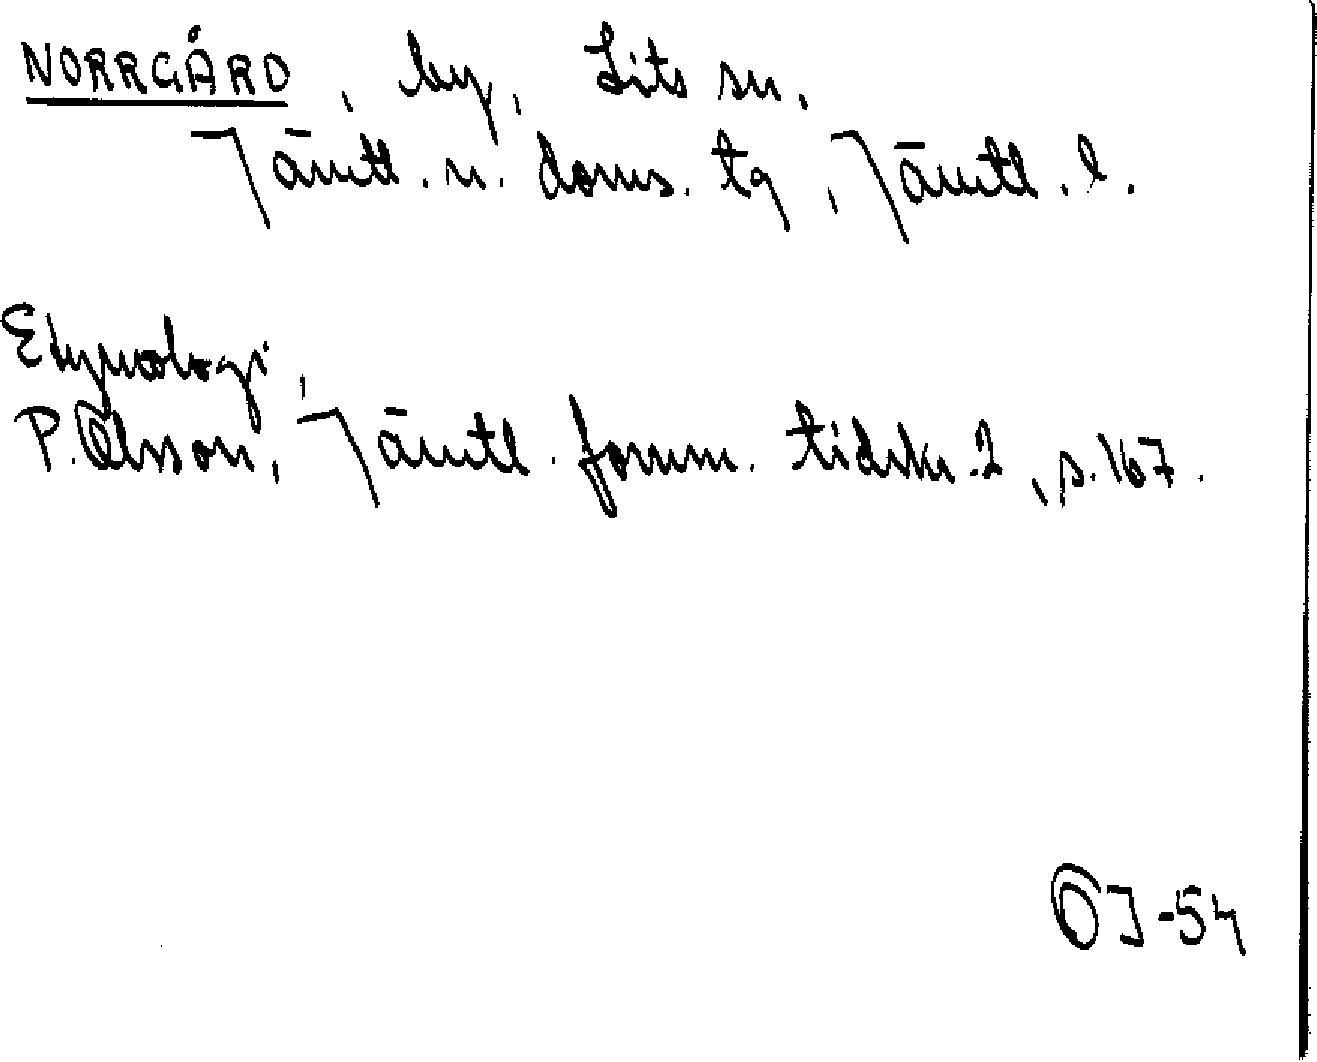 NORRGÅRD, by, Lits sn.
Jämtl. n. doms. tg, Jämtl. l.
Etymologi,
P. Olsson, Jämtl. fornm. tidskr. 2, s. 167.
OJ-54